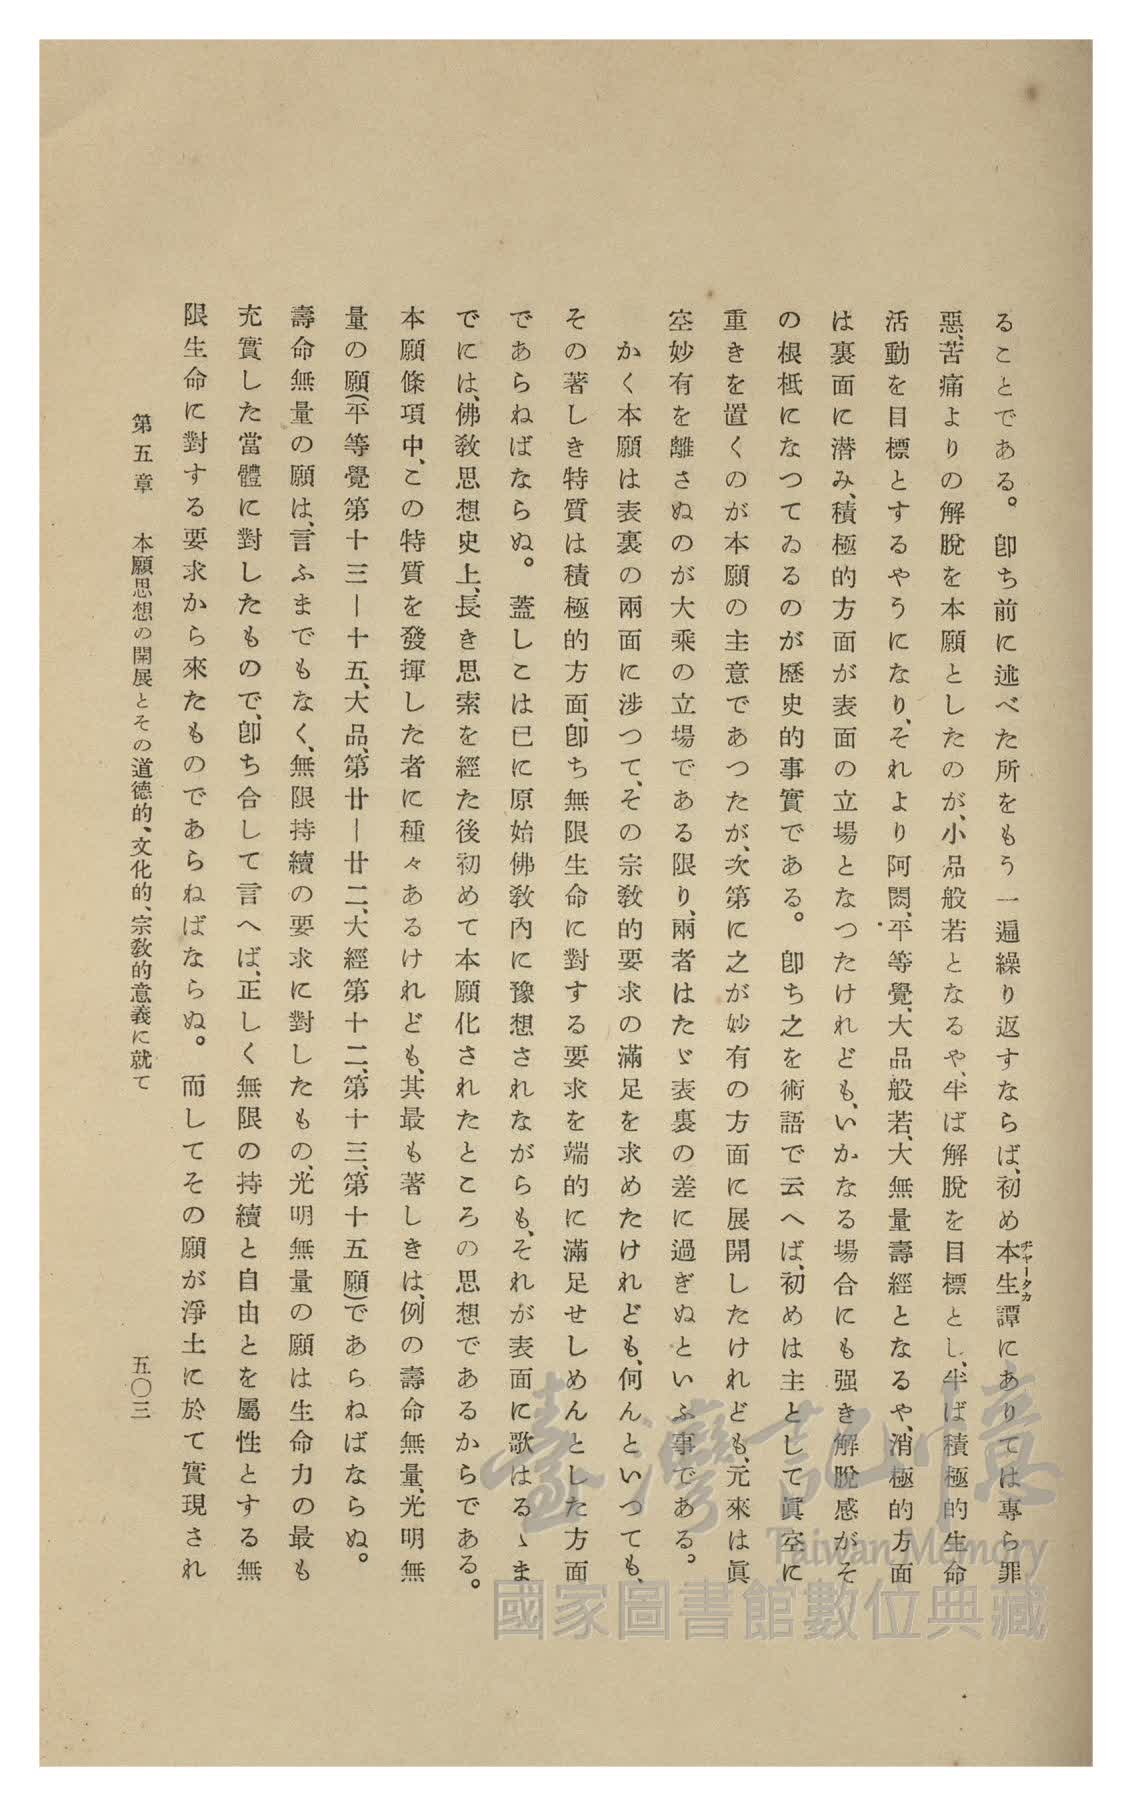 ることである。卽ち前に述べた所をもう一遍繰り返すならば、初め本生譚にありては專ら罪
ヂャータカ
惡、苦痛よりの解脫を本願としたのが、小品般若となるや、半ば解脫を目標とし、半ば積極的生命
活動を目標とするやうになり、それより阿閦、平等覺、大品般若、大無量壽經となるや、消極的方面
は裏面に潜み、積極的方面が表面の立場となつたけれども、いかなる場合にも强き解脫感がそ
の根柢になつてゐるのが歷史的事實である。卽ち之を術語で云へば、初めは主として眞空に
重きを置くのが本願の主意であつたが、次第に之が妙有の方面に展開したけれども、元來は眞
空妙有を離さぬのが大乘の立場である限り、兩者はたゞ表裏の差に過ぎぬといふ事である。
かく本願は表裏の兩面に涉つて、その宗敎的要求の滿足を求めたけれども、何んといつても、
その著しき特質は積極的方面、卽ち無限生命に對する要求を端的に滿足せしめんとした方面
であらねばならぬ。蓋しこは已に原始佛敎內に豫想されながらも、それが表面に歌はるゝま
でには、佛敎思想史上、長き思索を經た後初めて本願化されたところの思想であるからである。
本願條項中、この特質を發揮した者に種々あるけれども、其最も著しきは、例の壽命無量、光明無
量の願(平等覺第十三—十五、大品、第廿—廿二、大經第十二、第十三、第十五願)であらねばならぬ。
壽命無量の願は、言ふまでもなく、無限持續の要求に對したもの、光明無量の願は生命力の最も
充實した當體に對したもので、卽ち合して言へば、正しく無限の持續と自由とを屬性とする無
限生命に對する要求から來たものであらねばならぬ。而してその願が淨土に於て實現され
第五章 本願思想の開展とその道德的、文化的、宗敎的意義に就て 五〇三
臺灣記憶
Taiwan Memory
國家圖書館數位典藏